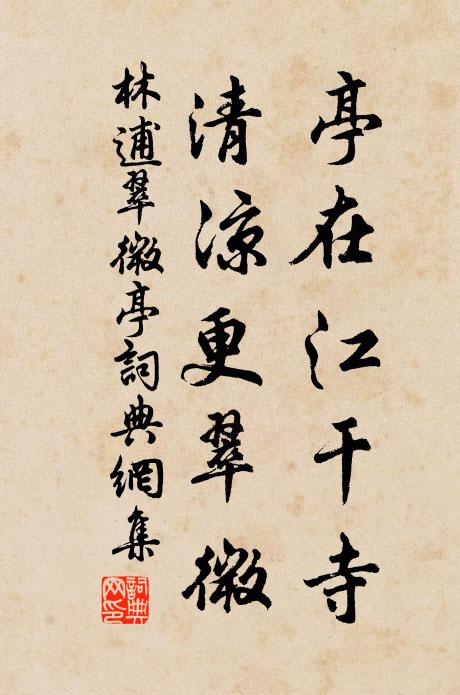 亭在江干寺
清涼更翠微
林逋翠微亭詞典網集
詞典网印